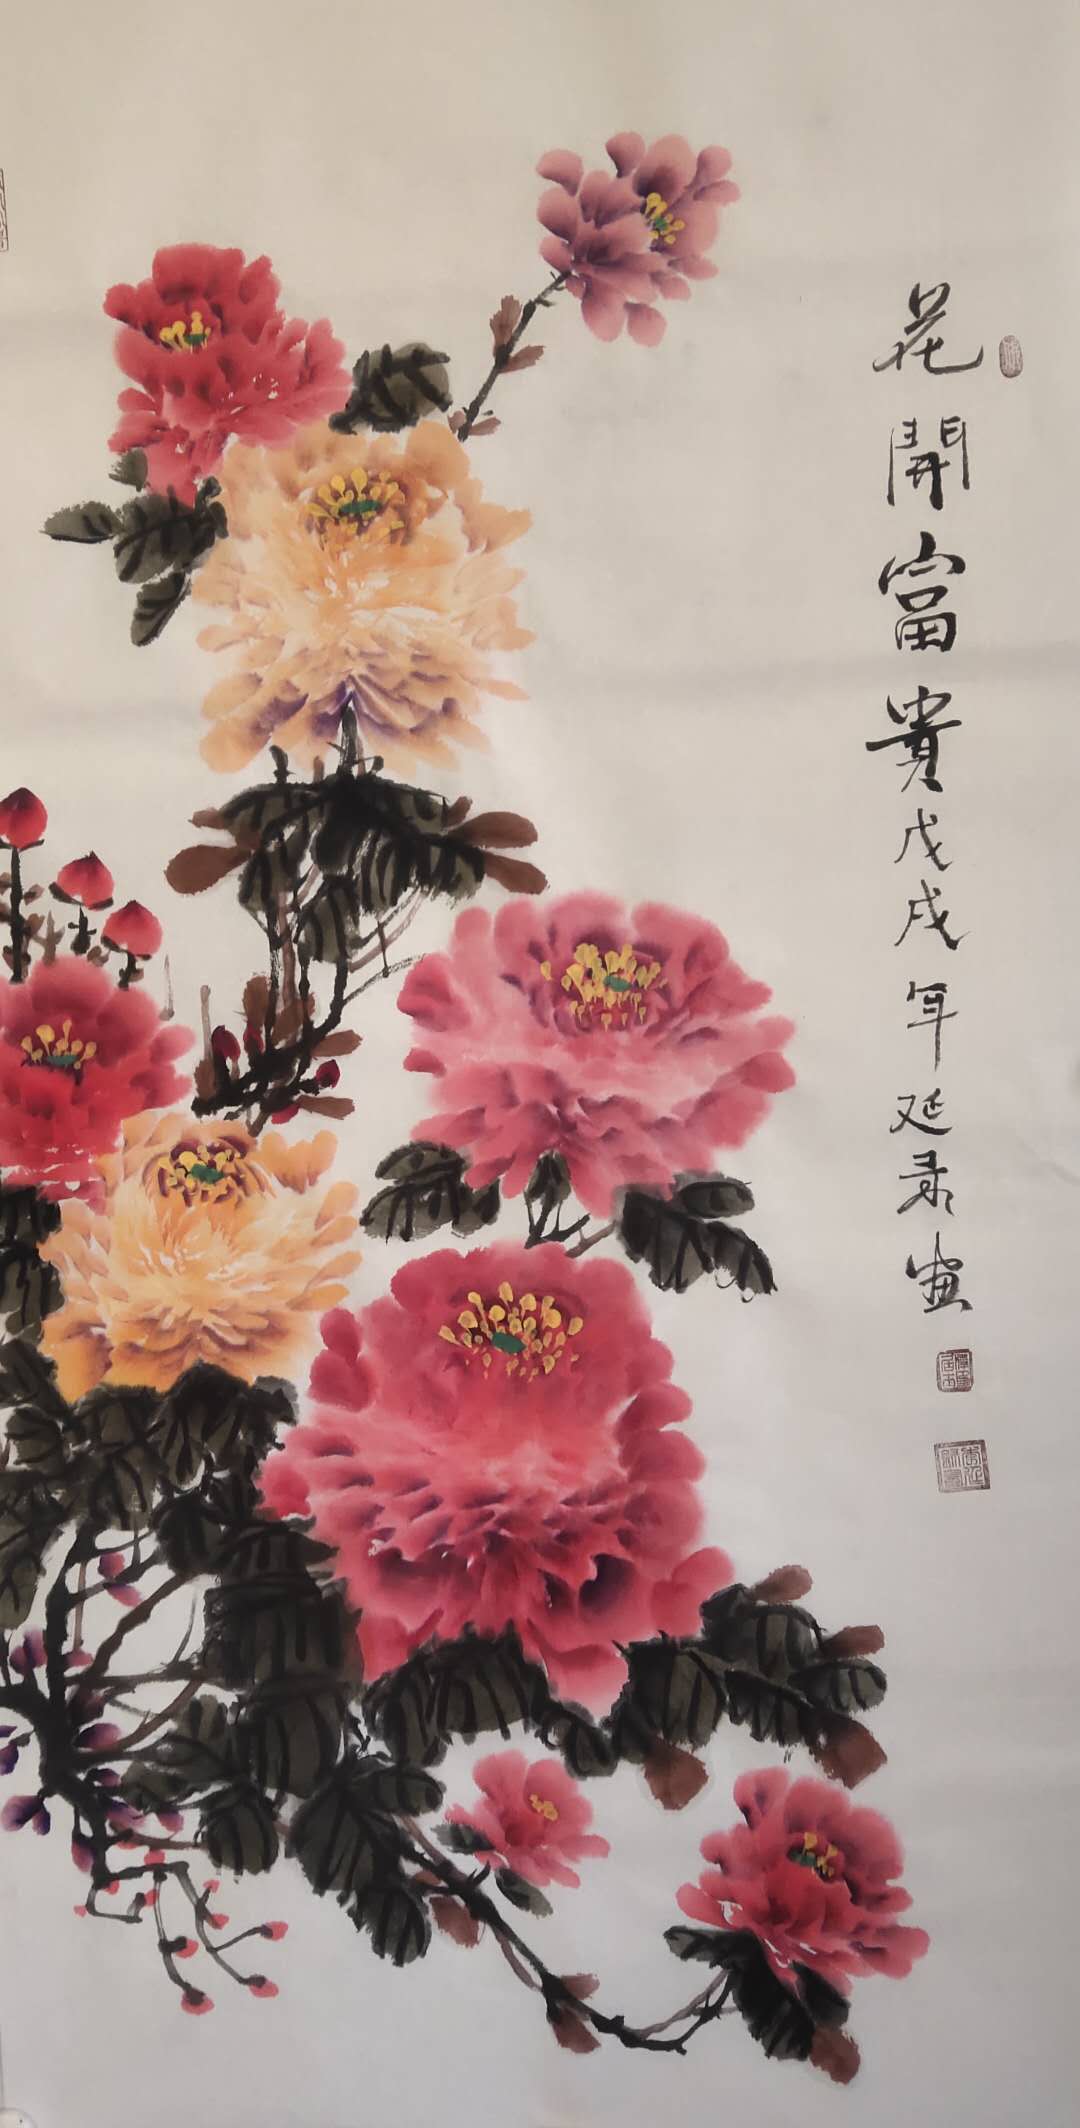 花開富貴戊戌年延录画